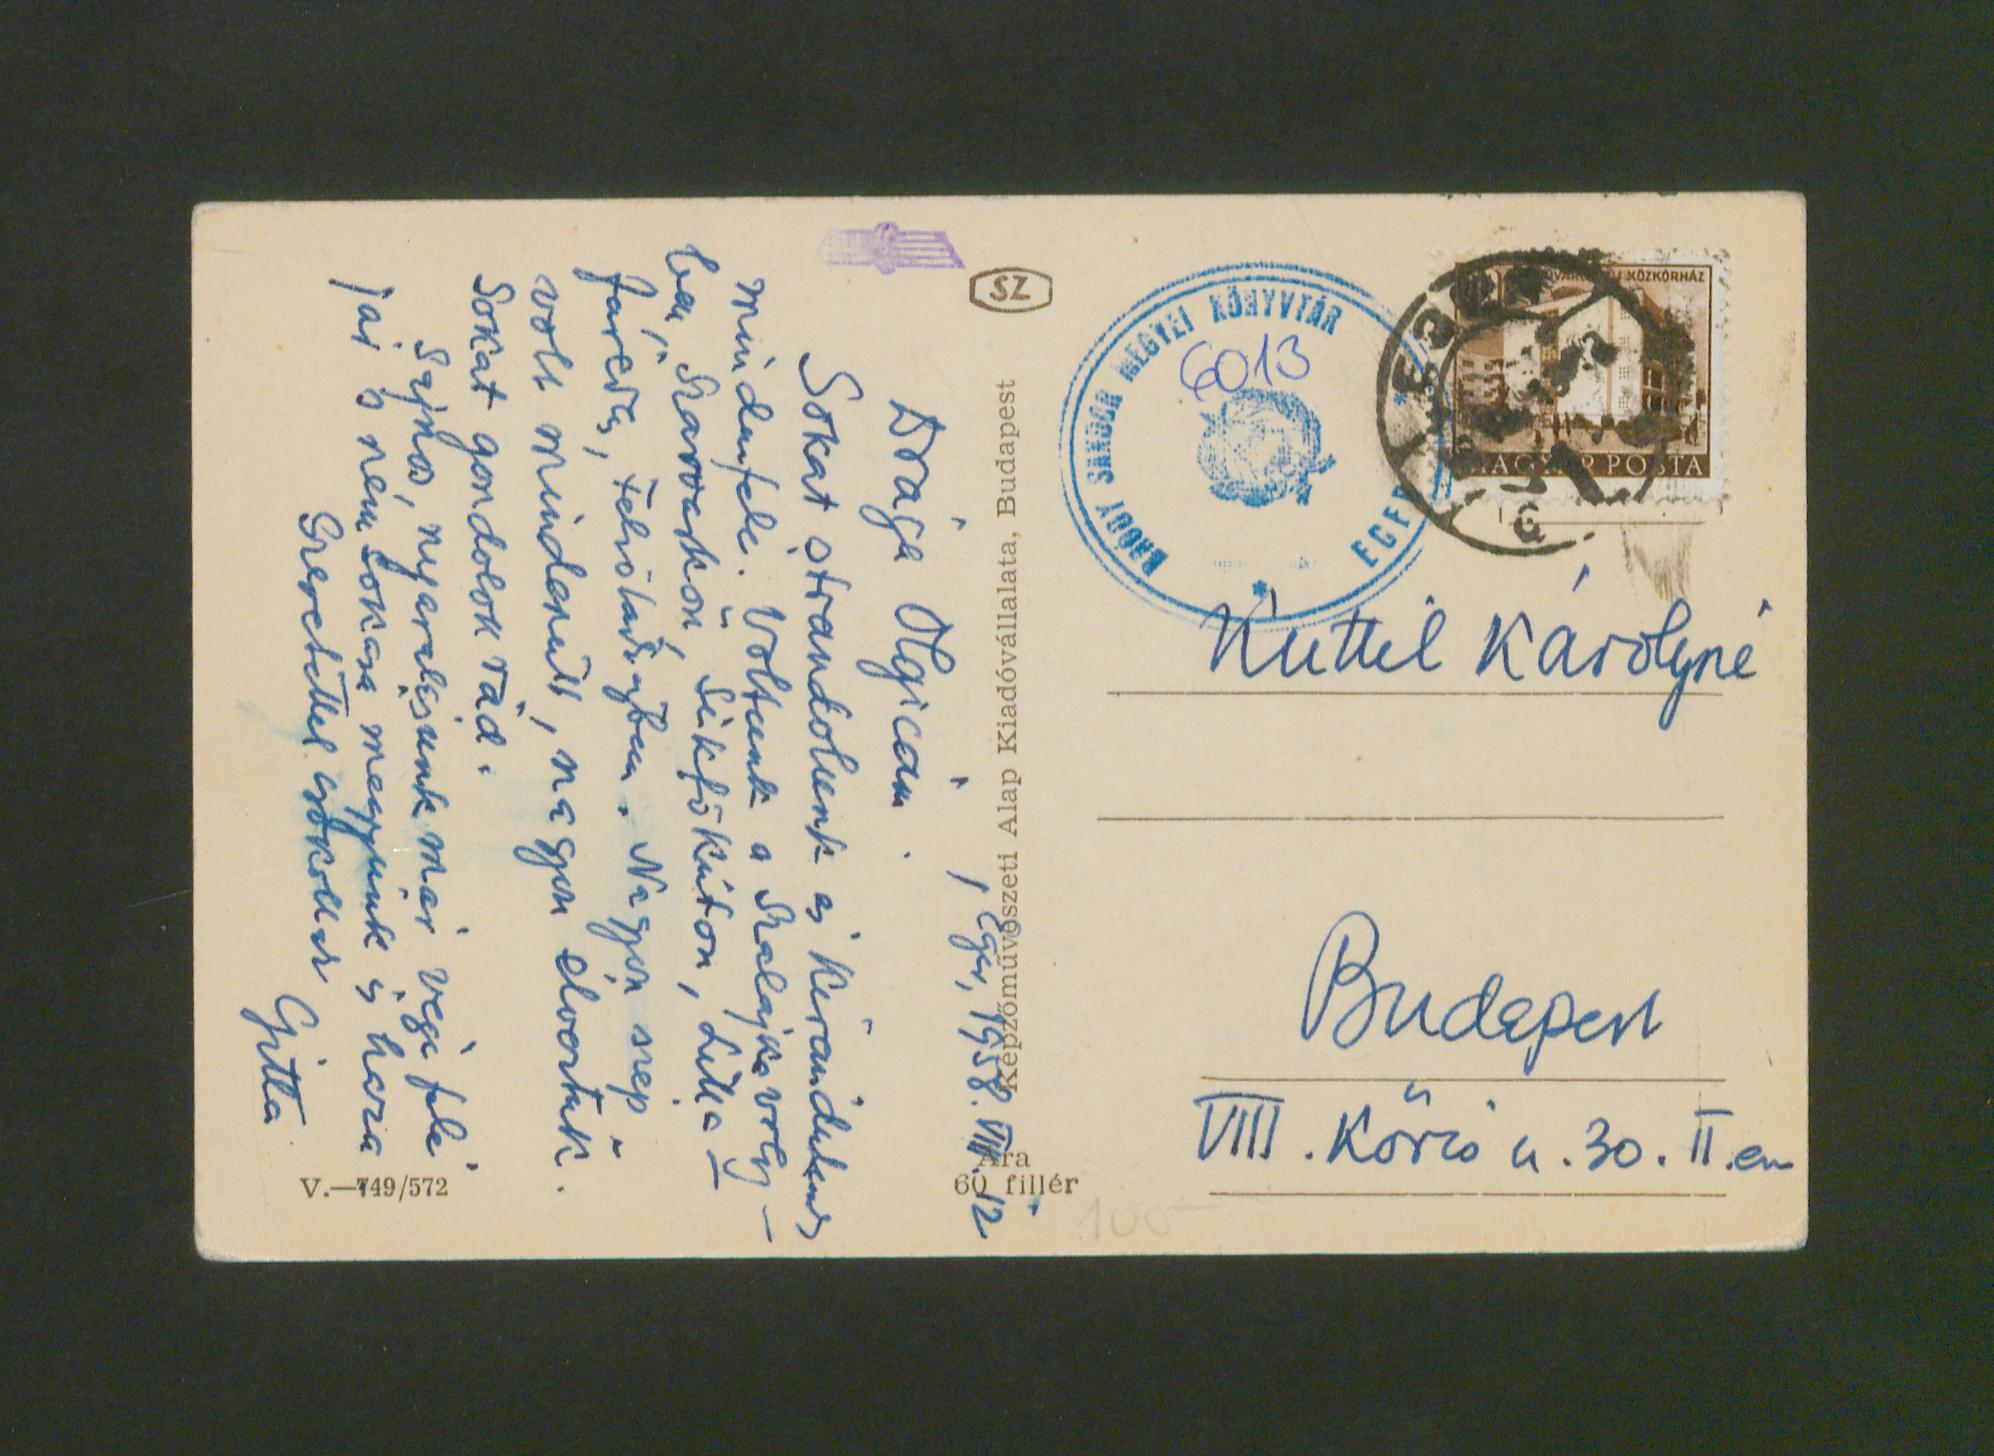 Eger, 1958. VIII. 12
Drága Olgicám.
Sokat strandolunk és kirándulunk
mindenfele. Voltunk a Szalajkavölgy-
ben, Szarvaskőn, Síkfőkúton, Lilla-
füreden, Felsőtárkányban. Nagyon szép
volt mindenütt, nagyon élveztük.
Sokat gondolok rád.
Sajnos, nyaralásunk már vége felé
jár s nem sokára megyünk is haza
Szeretettel csókollak
Gitta
V.—749/572
Képzőművészeti Alap Kiadóvállalata, Budapest
SZ
Ára
60 fillér
BRÓDY SÁNDOR MEGYEI KÖNYVTÁR
EGER
6013
KÖZKÓRHÁZ
MAGYAR POSTA
EGER
Kuttel Károlyné
Budapest
VIII. Kőris u. 30. II. em
100-